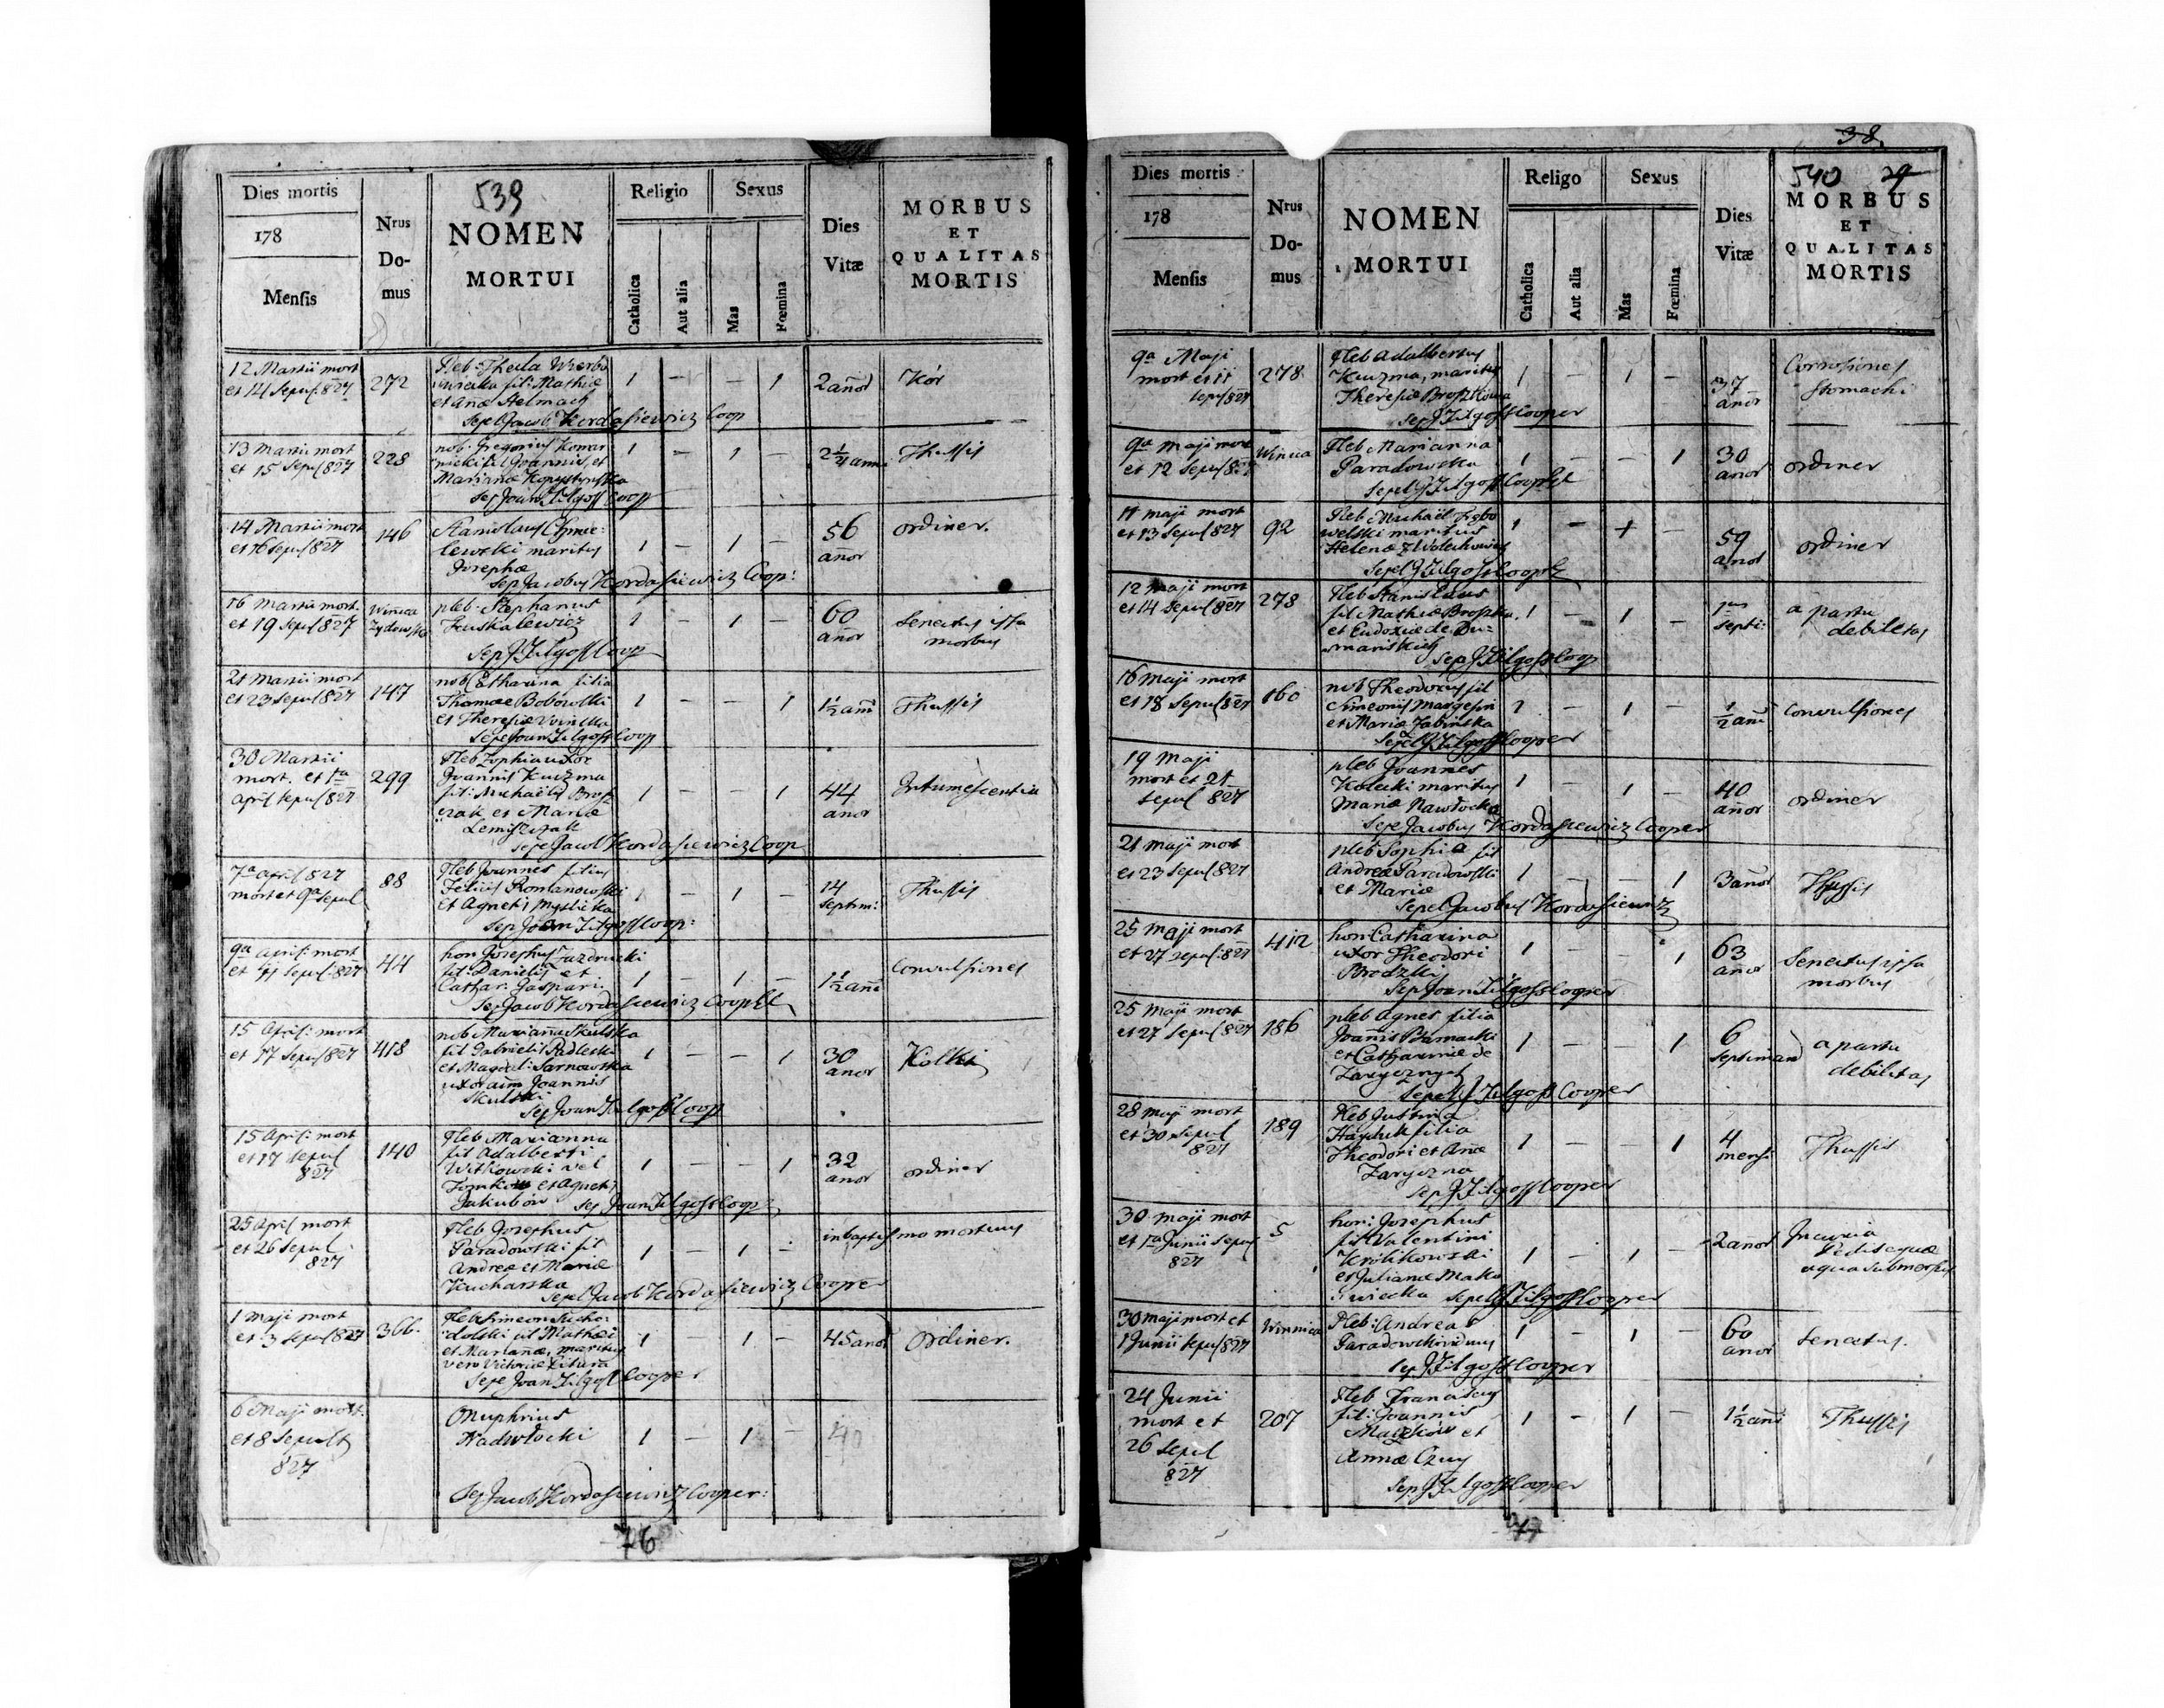 539
Dies mortis
178
Mensis
Nrus
Do-
mus
NOMEN
MORTUI
Religio
Catholica
Aut alia
Sexus
Mas
Fœmina
Dies
Vitæ
MORBUS
ET
QUALITAS
MORTIS
12 Martii mort
et 14 Sepul: 827
272
Pleb: Thecla Wierbo
wiecka fil: Mathiæ
et Annæ Helmach
1 - - 1
2 anor
Kór
Sepel Jacob Kordasiewicz Coop
13 Martii mort
et 15 Sepul 827
228
nob: Gregorius Komar
nicki fil Joannis et
Mariana Kopystynska
1 - 1 -
2 1/4 anni
Thussis
Sep Joan Zilgoff Coop
14 Martii mort
et 16 Sepul 827
146
Stanislaus Chmie:
lewski maritus
Josephæ
1 - 1 -
56
anor
ordiner.
Sep Jacobus Kordasiewicz Coop:
16 Martii mort.
et 19 Sepul 827
Winica
Zydowska
pleb: Stephanus
1 - 1 -
60
anor
Senectus ipsa
morbus
Sep J Zilgoff Coop
21 Martii mort
et 23 Sepul 827
147
nob Catharina filia
Thomae Bobowski
et Theresiæ Winicka
1 - - 1
1 1/2 anni
Thussis
Sepe Joan Zilgoff Coop
30 Martii
mort. et 1ma
april sepul 827
299
Pleb Zophia uxor
Joannis Kuczma
fil: Michaëlis Brosz
czak et Mariæ
Lemiszczak
1 - - 1
44
anor
Intumescentia
Sepe Jacob Kordasiewicz Coop
7a april 827
mort et 9a Sepul
88
Pleb Joannes filius
Felicis Romanowski
et Agnetis Myslicka
1 - 1 -
14
Septim:
Thussis
Sep Joan Zilgoff Coop:
9a april: mort
et 11 Sepul: 827
44
hon Josephus Jazdrucki
fil: Danielis et
Cathar: Gaspari:
1 - 1 -
1 1/2 anni
Convulsiones
Sep Jacob Kordasiewicz Coop
15 April: mort
et 17 Sepul 827
418
nob Marianna Skulska
fil Gabrielis Padlecki
et Magdal: Sarnowska
uxor aum Joannis
Skulski
1 - - 1
30
anor
Kolki
Sep Joan Zilgoff Coop
15 April: mort
et 17 Sepul
827
140
Pleb Marianna
fil Adalberti
Witkowski vel
Tomkow et Agnetis
Jakubow
1 - - 1
32
anor
ordiner
Sep Joan Zilgoff Coop
25 April mort
et 26 Sepul
827
Pleb Josephus
Paradowski fil
Andreæ et Mariæ
Kucharska
1 - 1 -
in baptismo mortuus
Sepel Jacob Kordasiewicz Cooper
1 Maji mort
et 3 Sepul 827
366.
Pleb Simeon Sucho:
dolski fil Mathæi
et Mariannæ, maritus
vero Victoriæ
1 - 1 -
45 anor
Ordiner.
Sepe Joan Zilgoff Cooper
6 Maji mort.
et 8 Sepult
827
Onuphrius
Nadwłocki
1 - 1 -
40
Sep Jacob Kordasiewicz Cooper:
76
38.
540 29
Dies mortis
178
Mensis
Nrus
Do-
mus
NOMEN
MORTUI
Religo
Catholica
Aut alia
Sexus
Mas
Fœmina
Dies
Vitæ
MORBUS
ET
QUALITAS
MORTIS
9a Maji
mort et 11
sepul 827
278
Pleb Adalbertus
Kuczma, maritus
Theresiæ Broszkowa
1 - 1 -
37
anor
Corrosiones
Stomachi
Sep J Zilgoff Cooper
9a Maji mort
et 12 Sepul 827
Winica
Pleb Marianna
Paradowska
1 - - 1
30
anor
ordiner
Sepel J Zilgoff Coop
11 Maji mort
et 13 Sepul 827
92
Pleb Michaël Zgbo
welski maritus
Helenæ
1 - + -
59
anor
ordiner
Sepel J Zilgoff Coop
12 Maji mort
et 14 Sepul 827
278
Pleb Stanislaus
fil Mathiæ Broszko
et Eudoxiæ de Du=
mariskich
1 - 1 -
1us
Septi:
a partu
debilitas
Sep J Zilgoff Coop
16 Maji mort
et 18 Sepul 827
160
nob Theodorus fil
Simeonis Margesin
et Mariæ Zabinska
1 - 1 -
1/2 anni
Convulsiones
Sepel J Zilgoff Cooper
19 Maji
mort et 21
Sepul 827
pleb Joannes
Kolecki maritus
Mariæ Nawłocka
1 - 1 -
40
anor
ordiner
Sepe Jacobus Kordasiewicz Cooper
21 Maji mort
et 23 Sepul 827
pleb Sophia fil
Andreæ Paradowski
et Mariæ
1 - - 1
3 anor
Thussis
Sepel Jacobus Kordasiewicz
25 Maji mort
et 27 sepul: 827
412
hon: Catharina
uxor Theodori
Brodzki
1 - - 1
63
anor
Senectus ipsa
morbus
Sep Joan Zilgoff Cooper
25 Maji mort
et 27 Sepul 827
186
pleb Agnes filia
Joannis
et Catharinæ de
Zarycznych
1 - - 1
6
Septimanar
a partu
debilitas
Sepel J Zilgoff Cooper
28 Maji mort
et 30 Sepul
827
189
Pleb Justina
Hayduk filia
Theodori et Annæ
Zaryczna
1 - - 1
4
mensi
Thussis
Sep J Zilgoff Cooper
30 Maji mort
et 1a Junii Sepul
827
5
hon: Josephus
fil Valentini
Krolikowski
et Julianæ Mako
wiecka
1 - 1 -
2 anor
Incuria
Pedisequæ
aqua submersus
Sepel J Zilgoff Cooper
30 Maji mort et
1 Junii Sepul 827
Winnica
Pleb: Andreas
Paradowski viduus
1 - 1 -
60
anor
Senectus.
Sep J Zilgoff Cooper
24 Junii
mort et
26 Sepul
827
207
Pleb Franciscus
fil: Joannis
Maczkow et
Annæ Czuy
1 - 1 -
1 1/2 anni
Thussis
Sep J Zilgoff Cooper
77